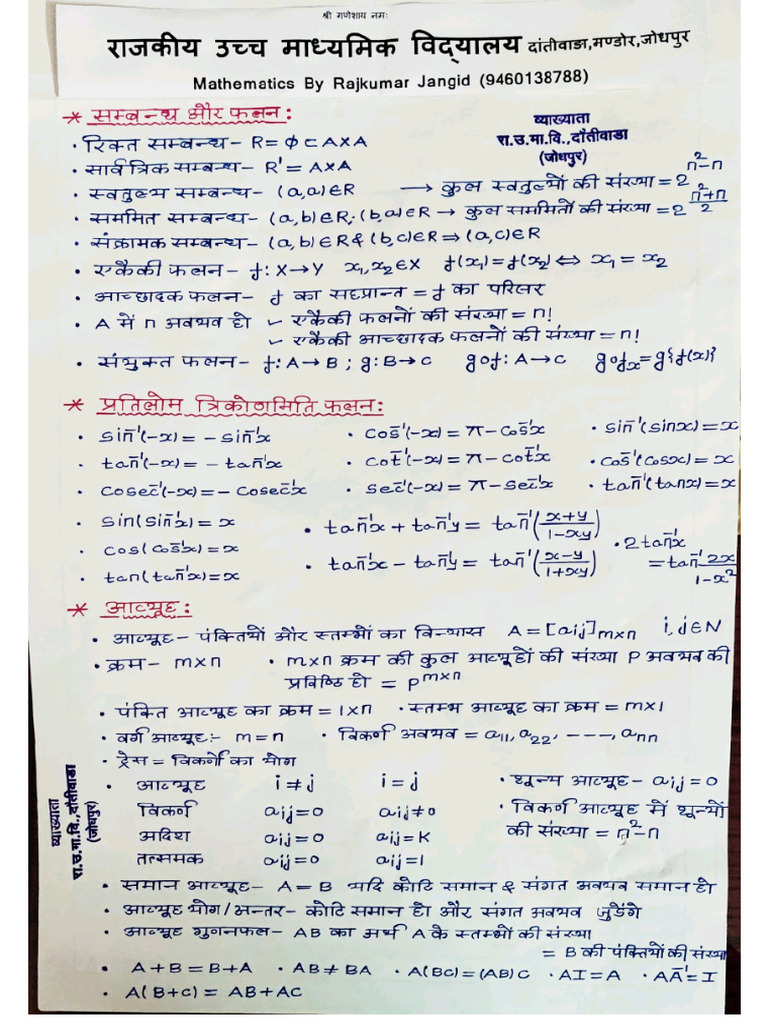 श्री गणेशाय नमः
राजकीय उच्च माध्यमिक विद्यालय दांतीवाडा,मण्डोर,जोधपुर
Mathematics By Rajkumar Jangid (9460138788)
* सम्बन्ध और फलन:
व्याख्याता
रा.उ.मा.वि.,दाँतीवाडा
(जोधपुर)
· रिक्त सम्बन्ध - R = ϕ ⊂ A×A
· सार्वत्रिक सम्बन्ध - R' = A×A
· स्वतुल्य सम्बन्ध - (a,a)∈R → कुल स्वतुल्यों की संख्या = 2^(n²-n)
· सममित सम्बन्ध - (a,b)∈R, (b,a)∈R → कुल सममितों की संख्या = 2^((n²+n)/2)
· संक्रामक सम्बन्ध - (a,b)∈R & (b,c)∈R ⇒ (a,c)∈R
· एकैकी फलन - f: X→Y x₁,x₂∈X f(x₁)=f(x₂) ⇔ x₁ = x₂
· आच्छादक फलन - f का सहप्रान्त = f का परिसर
· A में n अवयव हो ✓ एकैकी फलनों की संख्या = n!
✓ एकैकी आच्छादक फलनों की संख्या = n!
· संयुक्त फलन - f: A→B ; g: B→C gof: A→C gofₓ = g{f(x)}
* प्रतिलोम त्रिकोणमिति फलन:
· sin⁻¹(-x) = - sin⁻¹x · cos⁻¹(-x) = π - cos⁻¹x · sin⁻¹(sinx) = x
· tan⁻¹(-x) = - tan⁻¹x · cot⁻¹(-x) = π - cot⁻¹x · cos⁻¹(cosx) = x
· cosec⁻¹(-x) = - cosec⁻¹x · sec⁻¹(-x) = π - sec⁻¹x · tan⁻¹(tanx) = x
· sin(sin⁻¹x) = x · tan⁻¹x + tan⁻¹y = tan⁻¹((x+y)/(1-xy))
· cos(cos⁻¹x) = x · 2tan⁻¹x = tan⁻¹ 2x/(1-x²)
· tan(tan⁻¹x) = x · tan⁻¹x - tan⁻¹y = tan⁻¹((x-y)/(1+xy))
* आव्यूह:
· आव्यूह - पंक्तियों और स्तम्भों का विन्यास A = [aij]m×n i,j∈N
· क्रम - m×n · m×n क्रम की कुल आव्यूहों की संख्या P अवयव की
प्रविष्ठि हो = P^(m×n)
· पंक्ति आव्यूह का क्रम = 1×n · स्तम्भ आव्यूह का क्रम = m×1
· वर्ग आव्यूह :- m = n · विकर्ण अवयव = a₁₁, a₂₂, ----, aₙₙ
· ट्रेस = विकर्णों का योग
· आव्यूह i ≠ j i = j · शून्य आव्यूह - aij = 0
विकर्ण aij = 0 aij ≠ 0 · विकर्ण आव्यूह में शून्यों
अदिश aij = 0 aij = K की संख्या = n²-n
तत्समक aij = 0 aij = 1
व्याख्याता
रा.उ.मा.वि.,दाँतीवाडा
(जोधपुर)
· समान आव्यूह - A = B यदि कोटि समान & संगत अवयव समान हो
· आव्यूह योग/अन्तर - कोटि समान हो और संगत अवयव जुडेंगे
· आव्यूह गुणनफल - AB का अर्थ A के स्तम्भों की संख्या
= B की पंक्तियों की संख्या
· A+B = B+A · AB ≠ BA · A(BC) = (AB)C · AI = A · AA⁻¹ = I
· A(B+C) = AB + AC